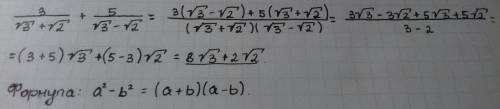 3/(√3+√2) + 5/(√3-√2) = (3(√3-√2)+5(√3+√2))/((√3+√2)(√3-√2)) = (3√3-3√2+5√3+5√2)/(3-2) =
=(3+5)√3+(5-3)√2 = 8√3+2√2.
Формула: a²-b² = (a+b)(a-b).